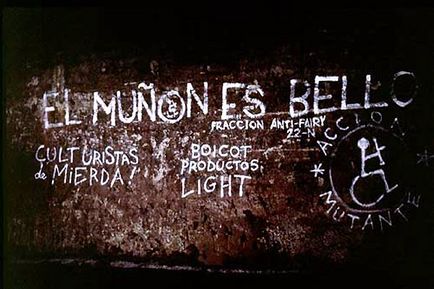 EL MUÑON ES BELLO
FRACCION ANTI-FAIRY
22-N
CULTURISTAS
de MIERDA!
BOICOT
PRODUCTOS
LIGHT
ACCION
MUTANTE